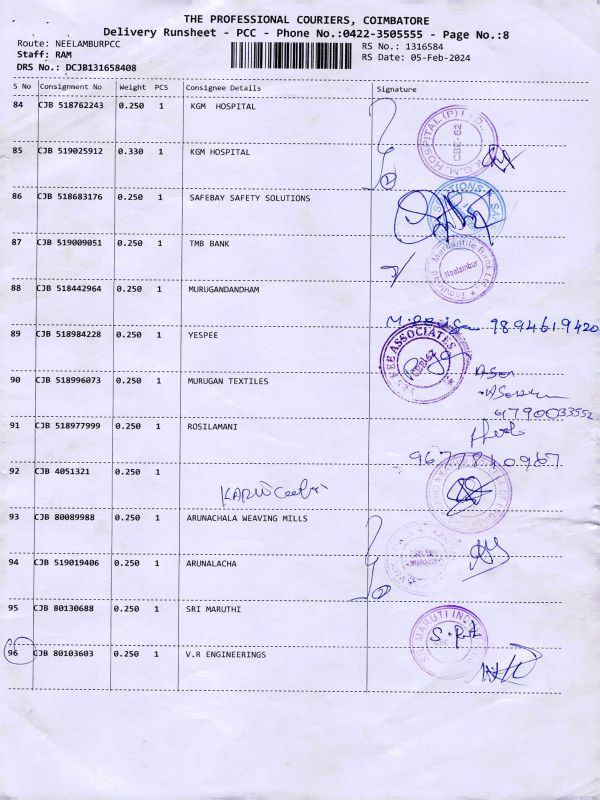 THE PROFESSIONAL COURIERS, COIMBATORE
Delivery Runsheet - PCC - Phone No.:0422-3505555 - Page No.:8
Route: NEELAMBURPCC
RS No.: 1316584
Staff: RAM
RS Date: 05-Feb-2024
DRS No.: DCJB131658408
S No Consignment No Weight PCS Consignee Details Signature
84 CJB 518762243 0.250 1 KGM HOSPITAL
K.G.M. HOSPITAL (P) LTD. CBE-62
85 CJB 519025912 0.330 1 KGM HOSPITAL
2
86 CJB 518683176 0.250 1 SAFEBAY SAFETY SOLUTIONS
87 CJB 519009051 0.250 1 TMB BANK
Tamilnad Mercantile Bank Ltd. Neelambur
88 CJB 518442964 0.250 1 MURUGANDANDHAM
9894619420
89 CJB 518984228 0.250 1 YESPEE
ASSOCIATES
90 CJB 518996073 0.250 1 MURUGAN TEXTILES
9790033552
91 CJB 518977999 0.250 1 ROSILAMANI
9677840967
92 CJB 4051321 0.250 1
93 CJB 80089988 0.250 1 ARUNACHALA WEAVING MILLS
94 CJB 519019406 0.250 1 ARUNALACHA
95 CJB 80130688 0.250 1 SRI MARUTHI
96 CJB 80103603 0.250 1 V.R ENGINEERINGS